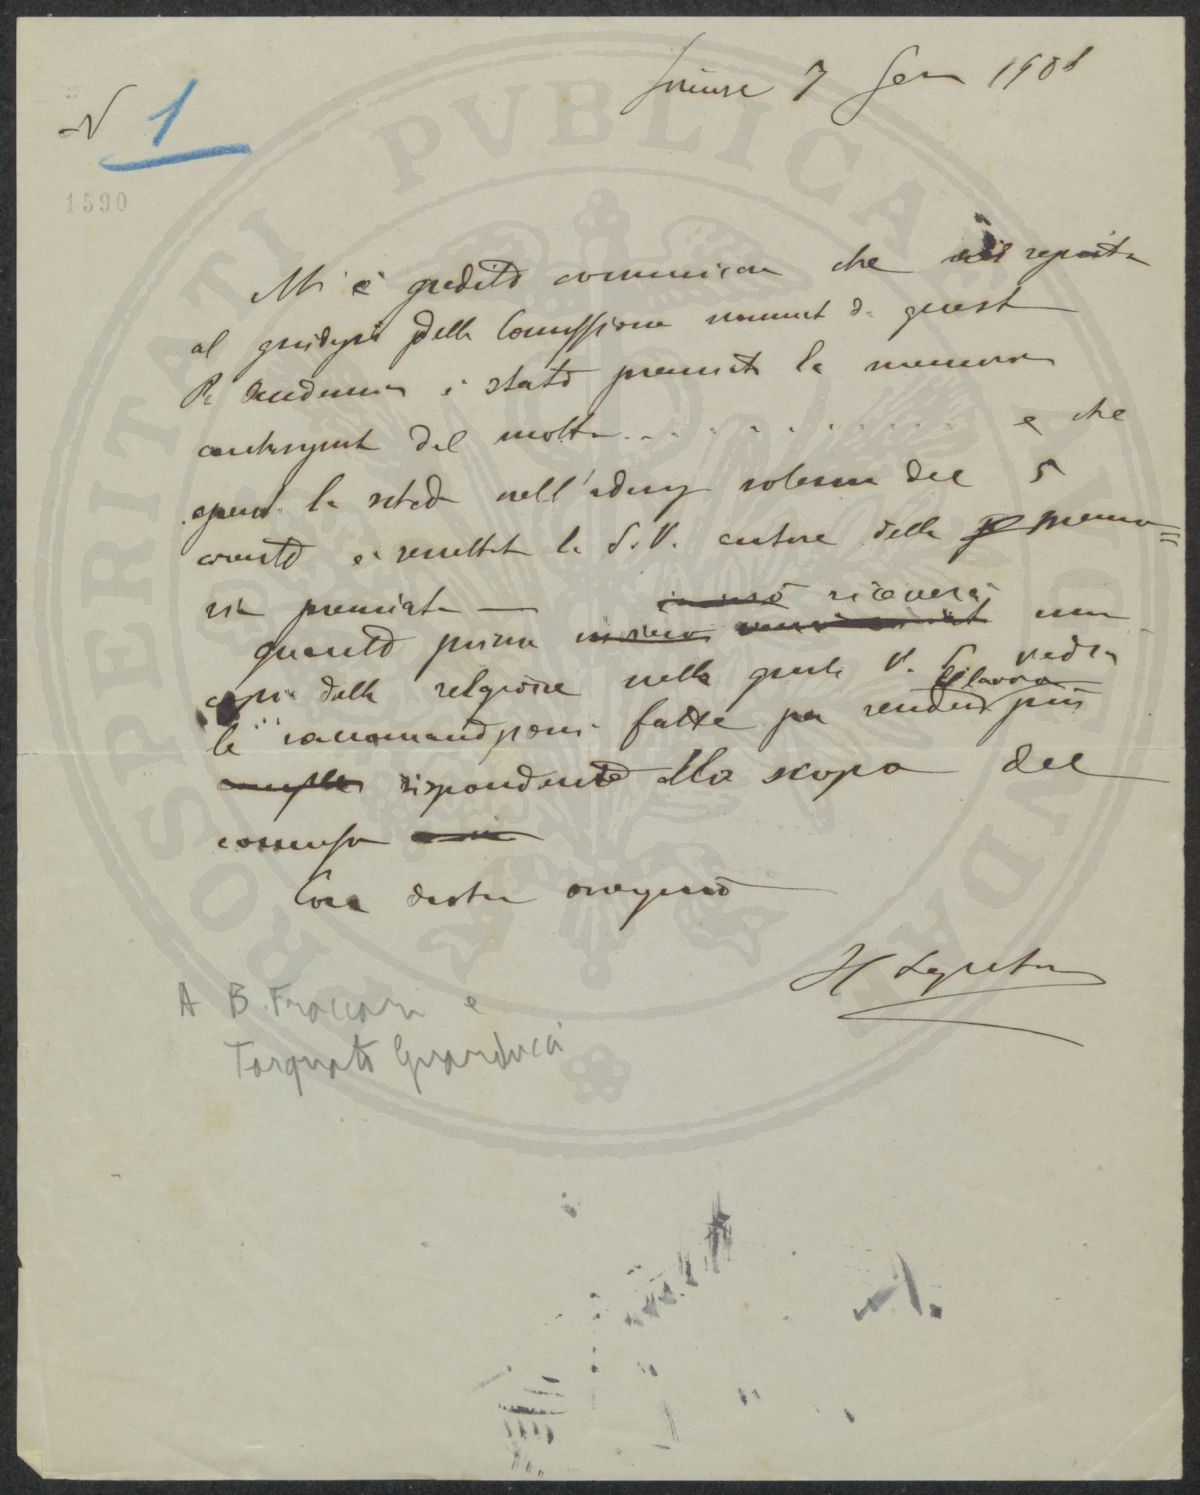 Firenze 7 Gen 1908
N 1
1590
Mi è gradito comunicare che in seguito
al giudizio della Commissione nominat da quest
R. Accademia è stato premiata la memoria
contrasegnat dal motto . . . . . . . . . . . . e che
aperta la scheda nell'adunz solenne del 5
corrente è resultat la S. V. autore della memo=
ria premiata —
riceverà
quanto prima una
copia della relazione nella quale V. S. vedrà
il lavoro
le raccomandazioni fatte per rendere più
rispondente allo scopo del
concorso
Con distin ossequio
Il Segretario
A B. Fraccari e
Torquato Guarducci
PROSPERITATI PVBLICAE AVGENDAE